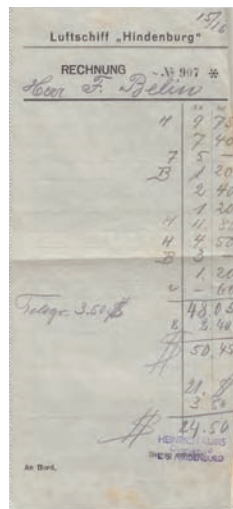 15/16
Luftschiff „Hindenburg"
RECHNUNG - № 907 *
Herr F. Belin
H 9 75
7 40
7 5 -
B 1 20
2 40
1 20
H 11.80
H 4 50
B 3 -
1. 20
- 60
Telegr. 3.50 $ 48,05
2.40
$ 50,45
21. $
3 50
$ 24.50
HEINRICH KUBIS
An Bord.
HINDENBURG